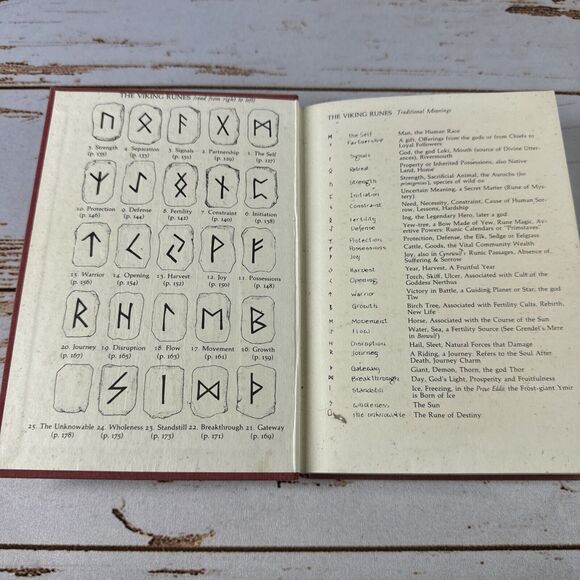 THE VIKING RUNES (read from right to left)
5. Strength 4. Separation 3. Signals 2. Partnership 1. The Self
(p. 135) (p. 133) (p. 131) (p. 129) (p. 127)
10. Protection 9. Defense 8. Fertility 7. Constraint 6. Initiation
(p. 146) (p. 144) (p. 142) (p. 140) (p. 138)
15. Warrior 14. Opening 13. Harvest 12. Joy 11. Possessions
(p. 156) (p. 154) (p. 152) (p. 150) (p. 148)
20. Journey 19. Disruption 18. Flow 17. Movement 16. Growth
(p. 167) (p. 165) (p. 163) (p. 161) (p. 159)
25. The Unknowable 24. Wholeness 23. Standstill 22. Breakthrough 21. Gateway
(p. 178) (p. 175) (p. 173) (p. 171) (p. 169)
THE VIKING RUNES Traditional Meanings
the Self Man, the Human Race
Partnership A gift, Offerings from the gods or from Chiefs to
Loyal Followers
Signals God, the god Loki, Mouth (source of Divine Utter-
ances), Rivermouth
Retreat Property or Inherited Possessions, also Native
Land, Home
Strength Strength, Sacrificial Animal, the Aurochs (bo
primigenius), species of wild ox
Initiation Uncertain Meaning, a Secret Matter (Rune of Mys-
tery)
Constraint Need, Necessity, Constraint, Cause of Human Sor-
row, Lessons, Hardship
Fertility Ing, the Legendary Hero, later a god
Defense Yew-tree, a Bow Made of Yew, Rune Magic, Av-
ertive Powers: Runic Calendars or "Primstaves"
Protection Protection, Defense, the Elk, Sedge or Eelgrass
Possessions Cattle, Goods, the Vital Community Wealth
Joy Joy, also in Cynewulf's Runic Passages, Absence of
Suffering & Sorrow
Harvest Year, Harvest, A Fruitful Year
Opening Torch, Skiff, Ulcer, Associated with Cult of the
Goddess Nerthus
Warrior Victory in Battle, a Guiding Planet or Star, the god
Tiw
Growth Birch Tree, Associated with Fertility Cults, Rebirth,
New Life
Movement Horse, Associated with the Course of the Sun
Flow Water, Sea, a Fertility Source (See Grendel's Mere in
Beowulf)
Disruption Hail, Sleet, Natural Forces that Damage
Journey A Riding, a Journey: Refers to the Soul After
Death, Journey Charm
Gateway Giant, Demon, Thorn, the god Thor
Breakthrough Day, God's Light, Prosperity and Fruitfulness
Standstill Ice, Freezing, in the Prose Edda the Frost-giant Ymir
is Born of Ice
wholeness The Sun
the unknowable The Rune of Destiny